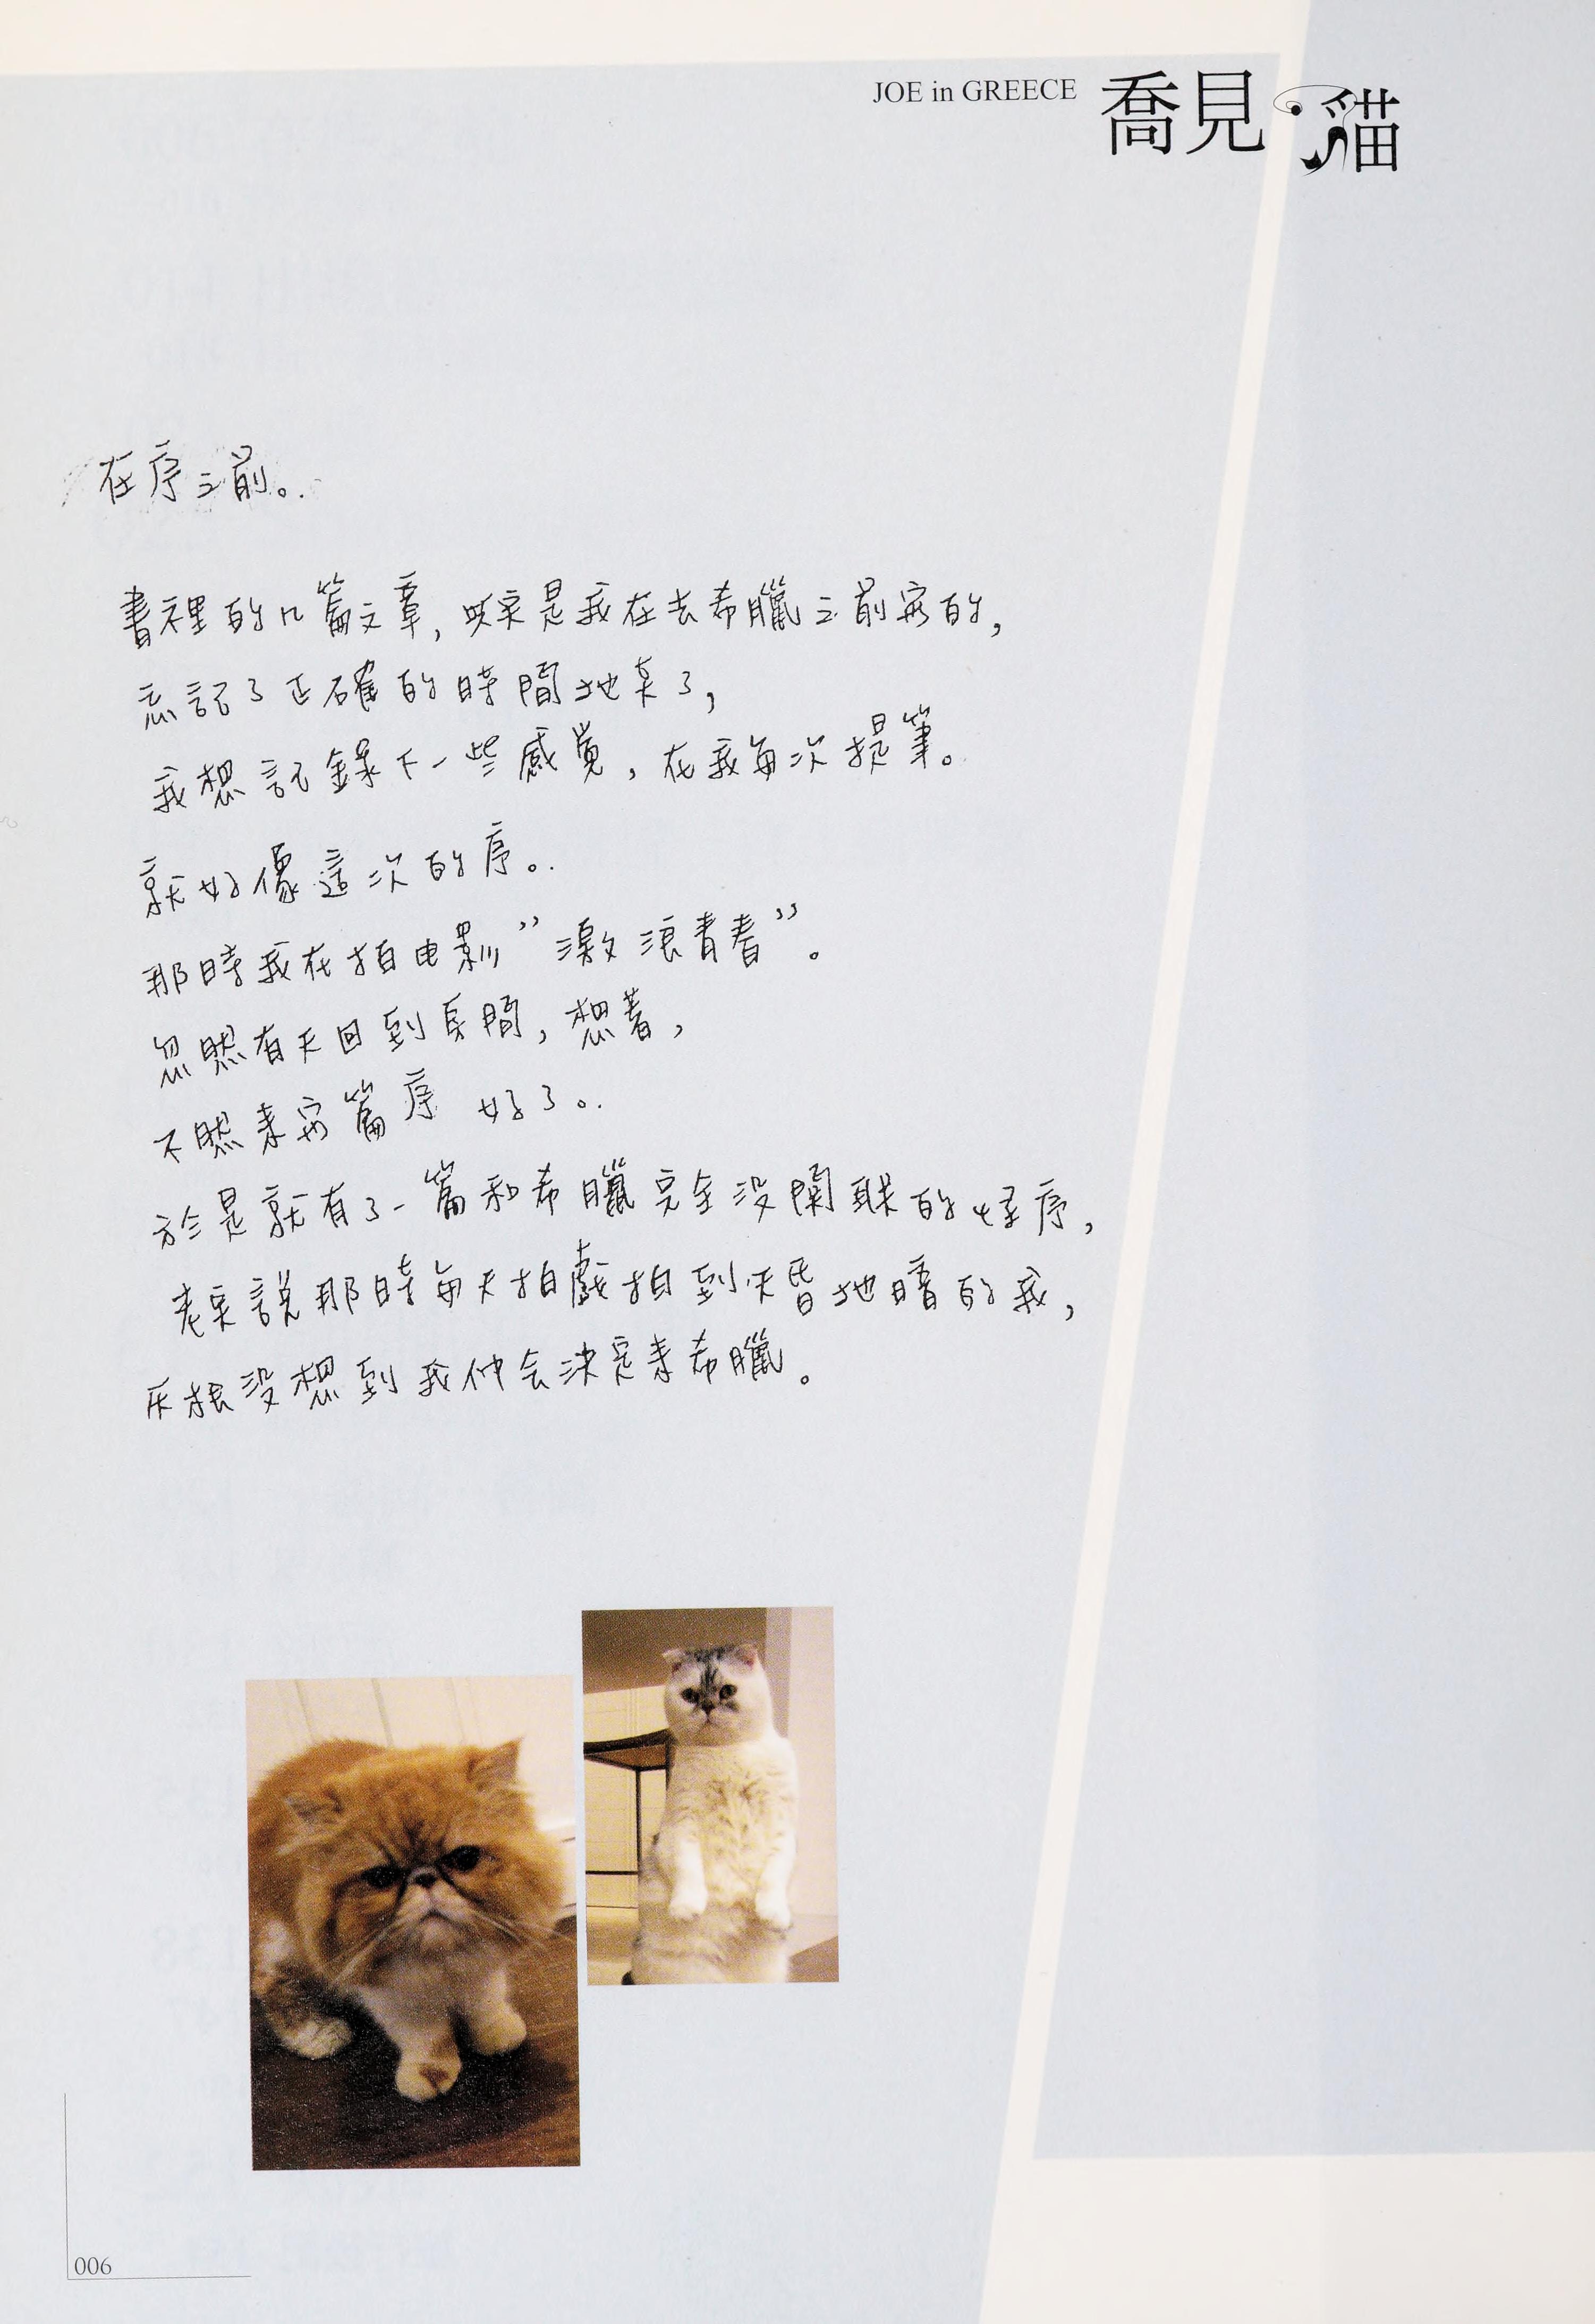 JOE in GREECE 喬見貓
在序之前。.
書裡的几篇文章, 是我在去希臘之前寫的,
忘記了正確的時間地点了,
我想記錄下一些感覺, 在我每次提筆。.
就好像這次的序。.
那時我在拍电影”激浪青春”。
忽然有天回到房間, 想著,
不然来寫篇序 好了。.
於是就有了一篇和希臘完全没関联的怪序,
老实說那時每天拍戲拍到天昏地暗的我,
压根没想到我們会決定来希臘。
006